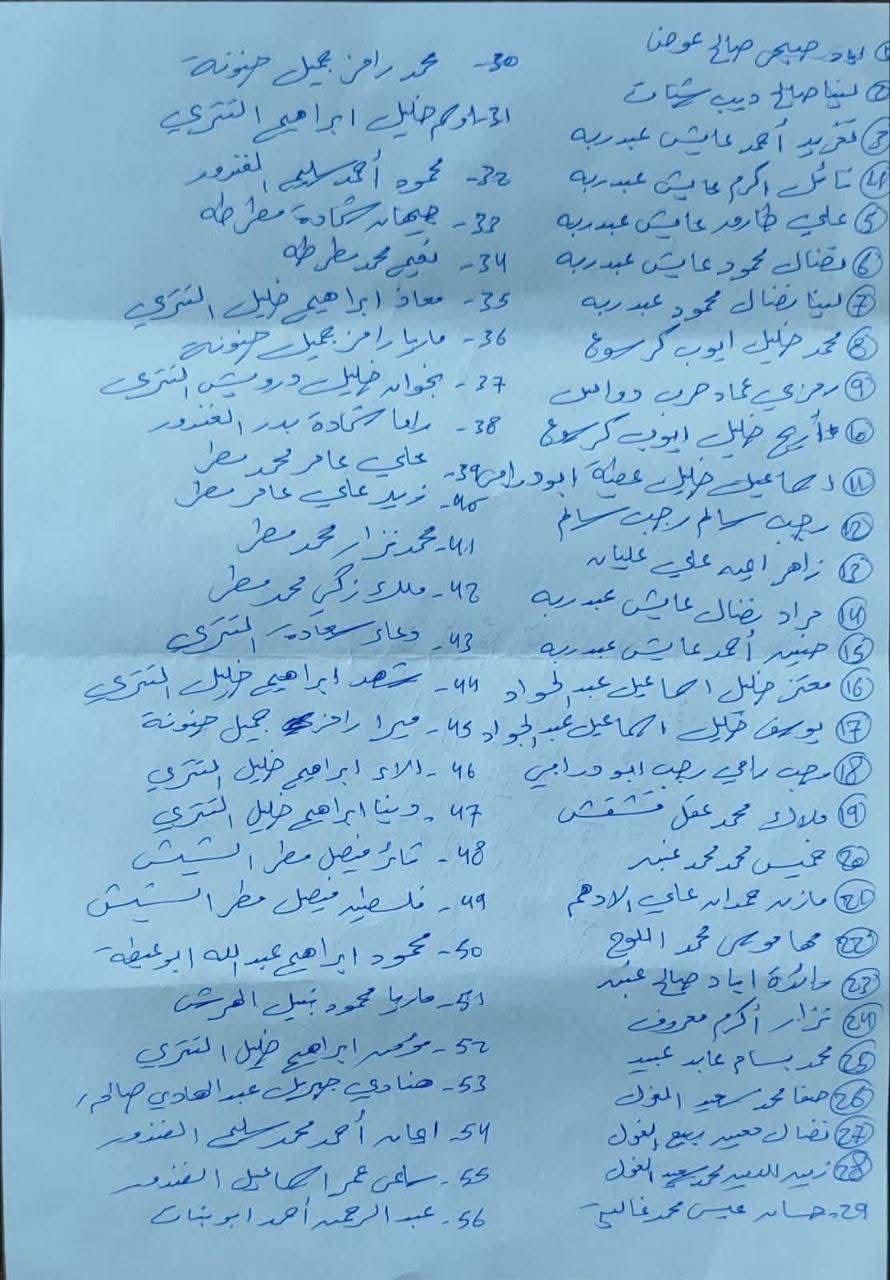 1 اياد صبحي صالح عوض
2 لينا صالح ديب شتات
3 تغريد أحمد عايش عبدربه
4 نائل اكرم عايش عبدربه
5 علي طارق عايش عبدربه
6 نضال محمود عايش عبدربه
7 لينا نضال محمود عبدربه
8 محمد خليل ايوب كرسوع
9 رمزي عماد حرب
10 أريج خليل ايوب كرسوع
11 اسماعيل خليل عطية ابودرابي
12 رجب سالم رجب سالم
13 زاهر علي عليان
14 مراد نضال عايش عبدربه
15 أحمد عايش عبدربه
16 معتز خليل اسماعيل عبد الجواد
17 يوسف خليل اسماعيل عبد الجواد
18 رجب رامي رجب ابو درابي
19 ملاك محمد عقل قشقش
20 خميس محمد محمد عنبر
21 مازن حمدان علي الادهم
22 مها موسى محمد اللوح
23 اياد صالح عنبر
24 نزار أكرم معروف
25 محمد بسام عابد عبيد
26 صفا محمد سعيد الغول
27 نضال معين ربيع الغول
28 محمد سعيد الغول
29- حسان محمد
30- محمد رامز جميل حنونة
31- ادهم خليل ابراهيم التتري
32- محمود أحمد سليم الغندور
33- جيهان شحادة مطر طه
34- نعيم محمد مطر طه
35- معاذ ابراهيم خليل التتري
36- ماريا رامز جميل حنونة
37- خليل درويش التتري
38- راما شحادة بدر الغندور
39- علي عامر محمد مطر
40- زيد علي عامر مطر
41- محمد نزار محمد مطر
42- ملك زكي محمد مطر
43- دعاء سعادة التتري
44- شهد ابراهيم خليل التتري
45- ميرا رامز جميل حنونة
46- الاء ابراهيم خليل التتري
47- دينا ابراهيم خليل التتري
48- ثائر فيصل مطر الشيش
49- فلسطين فيصل مطر الشيش
50- محمود ابراهيم عبد الله ابوعيطة
51- ماريا محمود نبيل الهرش
52- مؤمن ابراهيم خليل التتري
53- هنادي جبريل عبد الهادي صالح
54- ايمان أحمد محمد سليم الغندور
55- عمر اسماعيل الغندور
56- عبد الرحمن أحمد ابو بنات